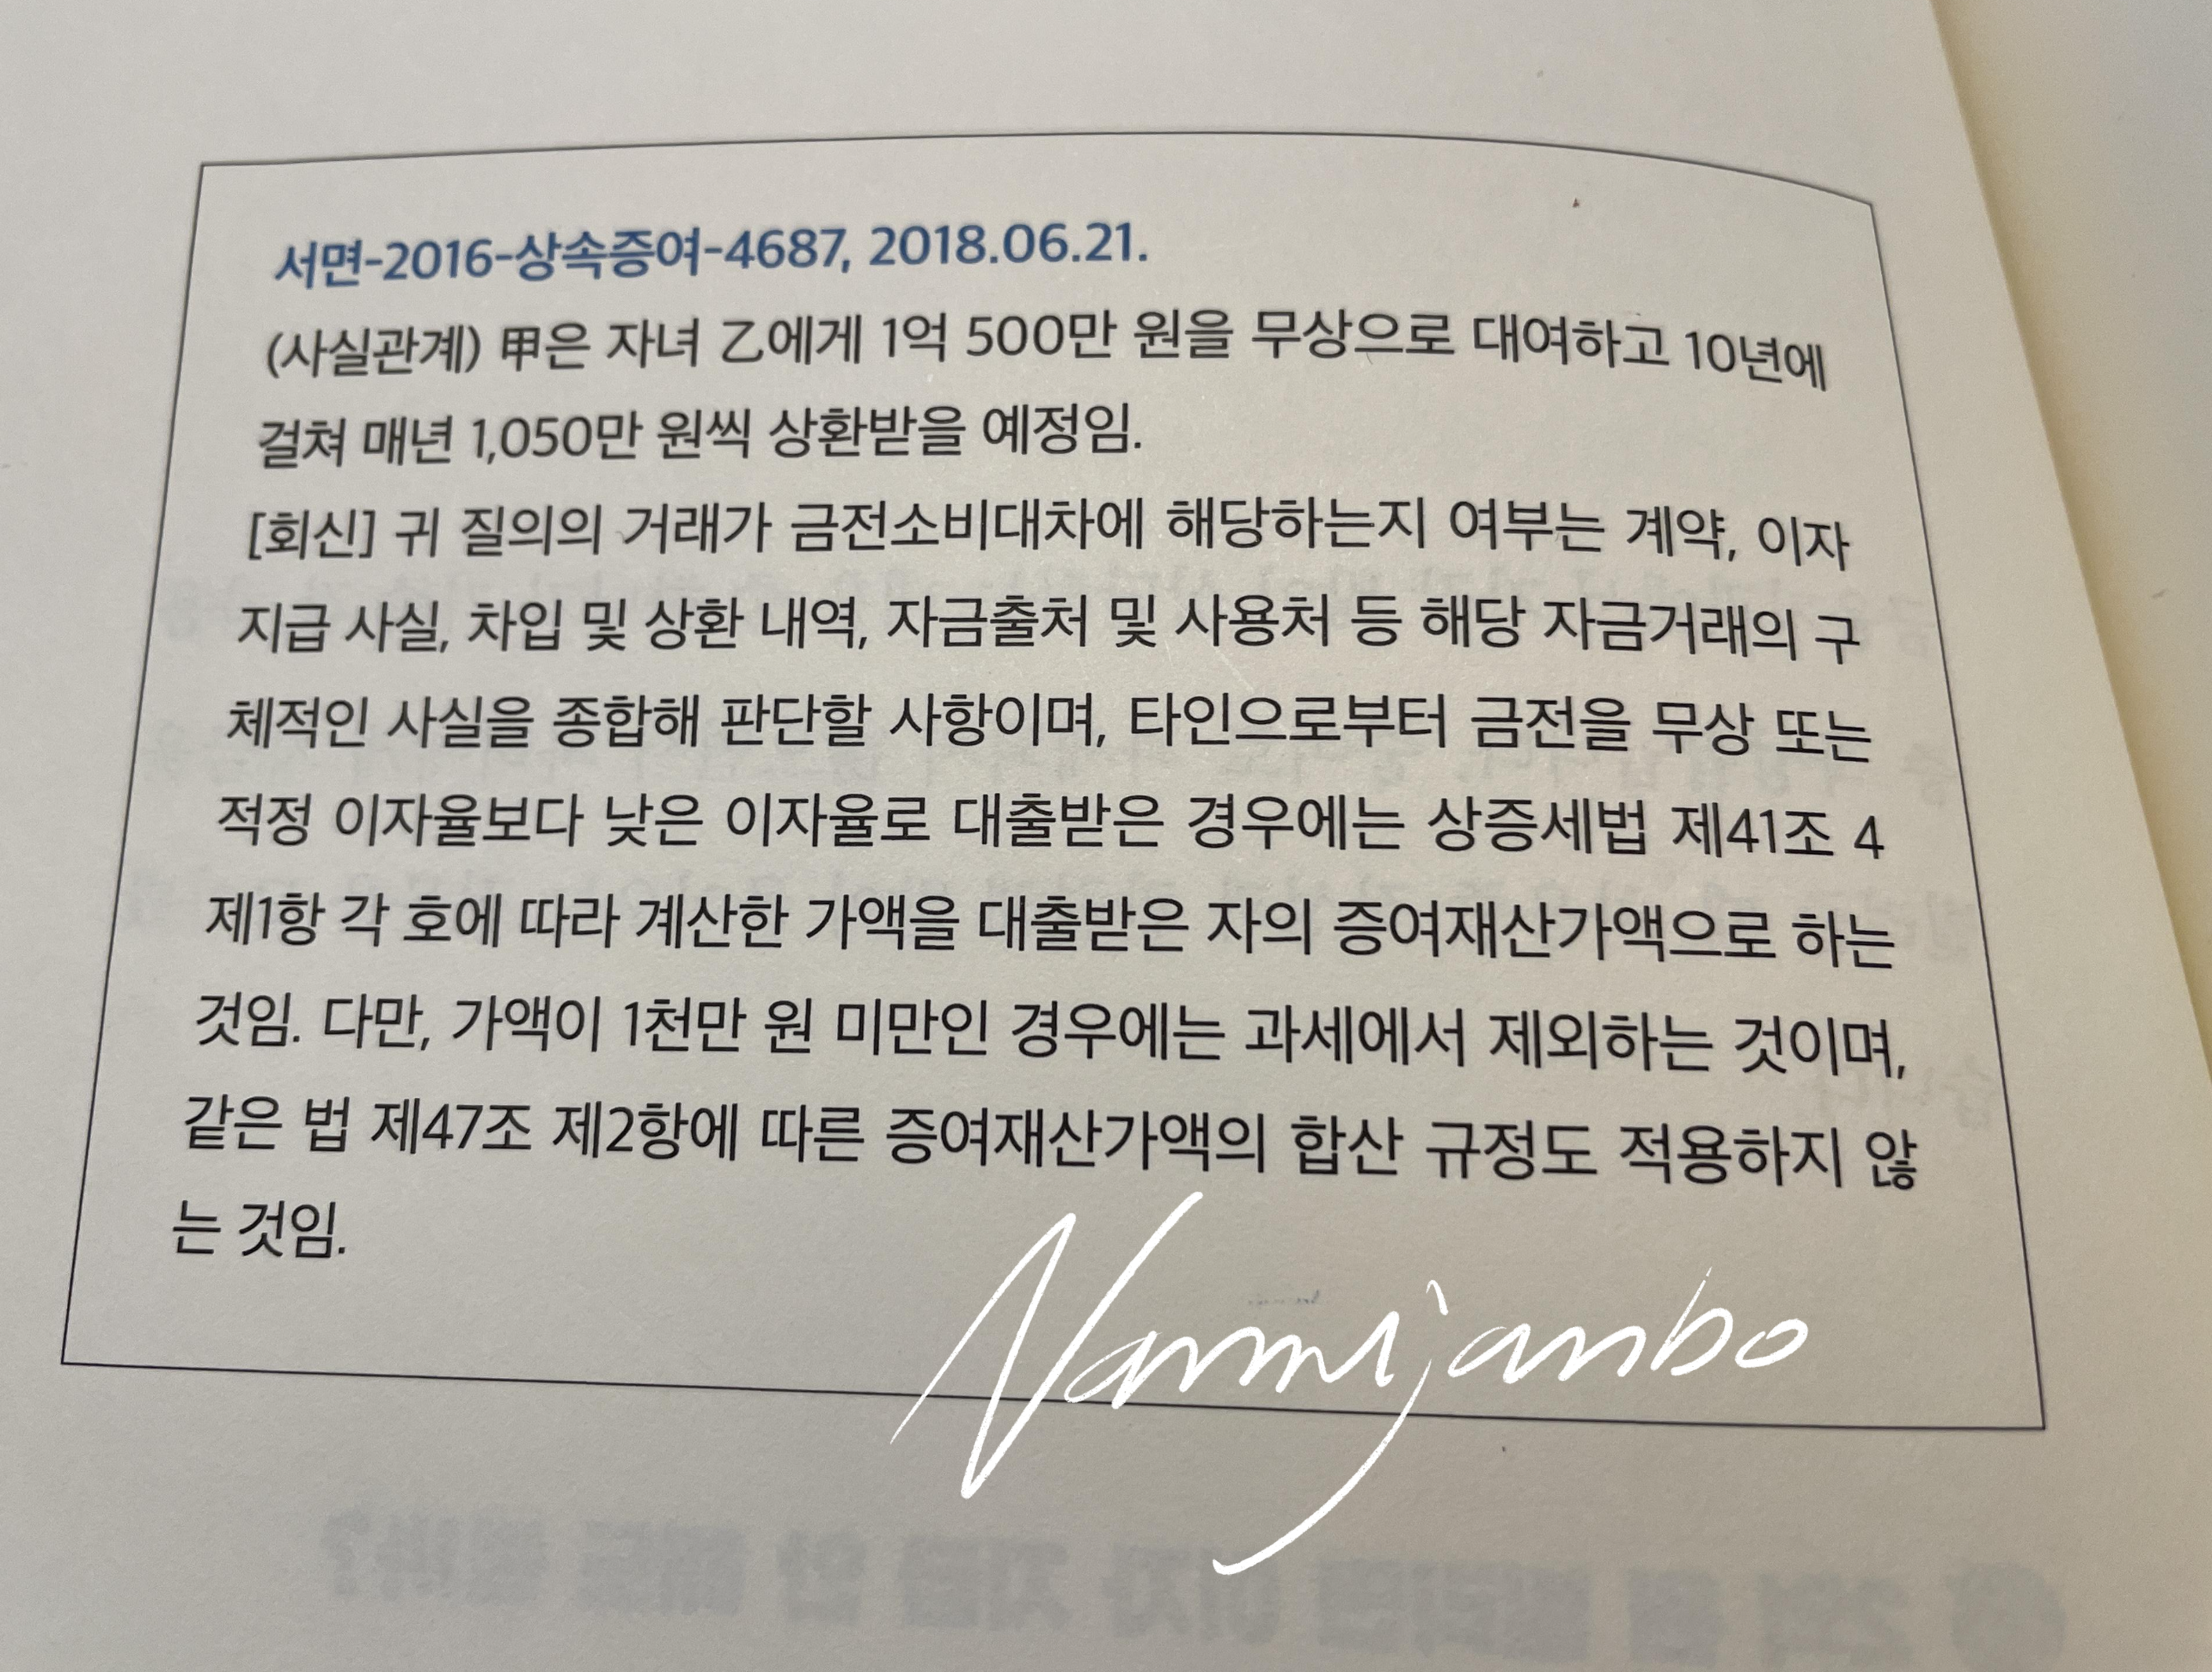 서면-2016-상속증여-4687, 2018.06.21.
(사실관계) 甲은 자녀 乙에게 1억 500만 원을 무상으로 대여하고 10년에
걸쳐 매년 1,050만 원씩 상환받을 예정임.
[회신] 귀 질의의 거래가 금전소비대차에 해당하는지 여부는 계약, 이자
지급 사실, 차입 및 상환 내역, 자금출처 및 사용처 등 해당 자금거래의 구
체적인 사실을 종합해 판단할 사항이며, 타인으로부터 금전을 무상 또는
적정 이자율보다 낮은 이자율로 대출받은 경우에는 상증세법 제41조 4
제1항 각 호에 따라 계산한 가액을 대출받은 자의 증여재산가액으로 하는
것임. 다만, 가액이 1천만 원 미만인 경우에는 과세에서 제외하는 것이며,
같은 법 제47조 제2항에 따른 증여재산가액의 합산 규정도 적용하지 않
는 것임.
Namijanbo